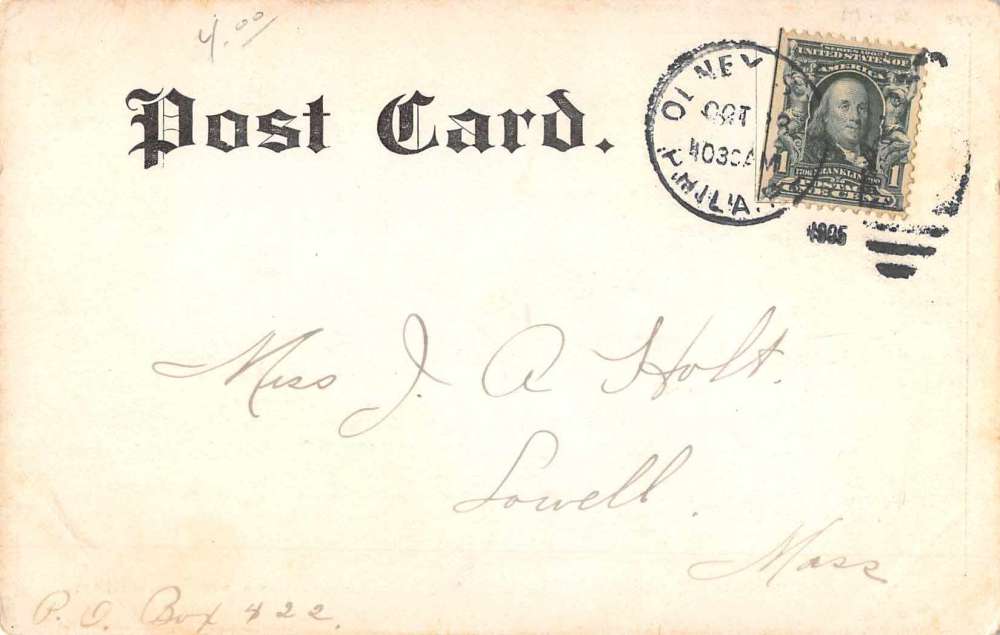 4.00
Post Card.
OLNEY
OCT
1030AM
PHILA.
1905
UNITED STATES OF
AMERICA
1 FRANKLIN 1
POSTAGE
ONE CENT
Miss J. A Holt.
Lowell.
Mass
P. O. Box 422.